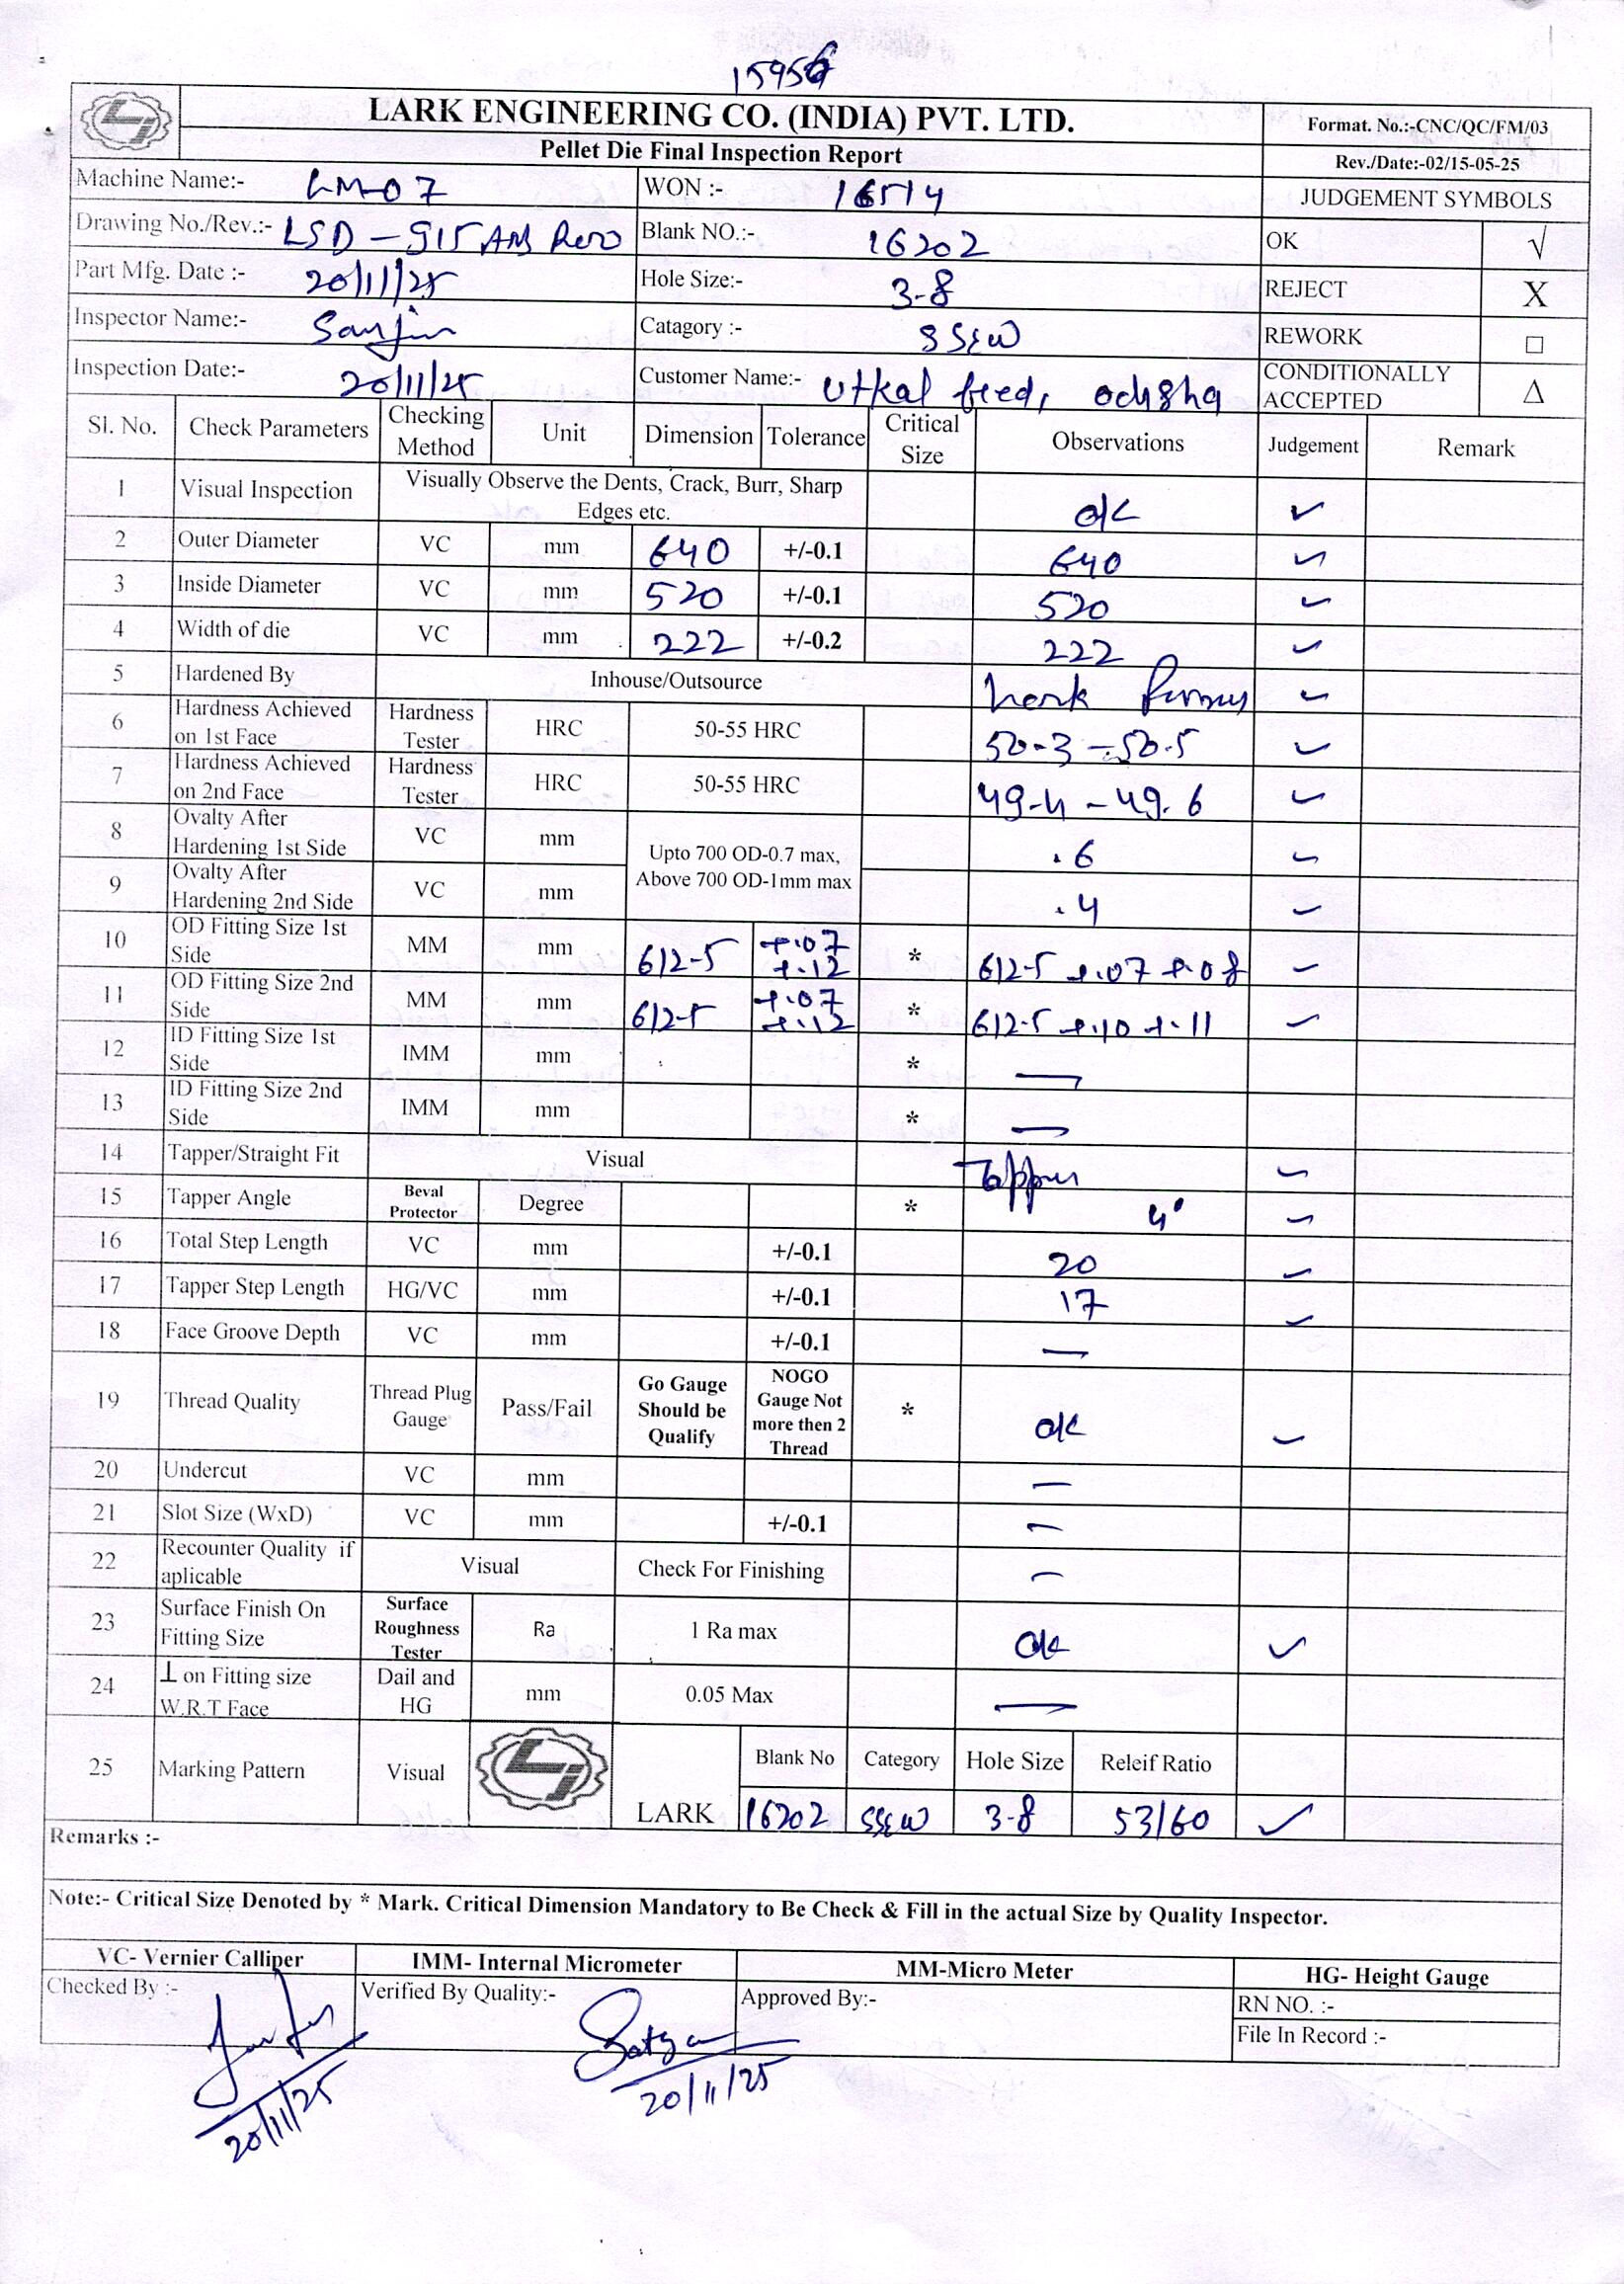 15956
LARK ENGINEERING CO. (INDIA) PVT. LTD.
Format. No.:-CNC/QC/FM/03
Pellet Die Final Inspection Report
Rev./Date:-02/15-05-25
Machine Name:- LM-07 WON :- 16514 JUDGEMENT SYMBOLS
Drawing No./Rev.:- LSD-915 AM Rev0 Blank NO.:- 16202 OK √
Part Mfg. Date :- 20/11/25 Hole Size:- 3-8 REJECT X
Inspector Name:- Catagory :- SSEW REWORK □
Inspection Date:- 20/11/25 Customer Name:- Utkal feed, odisha CONDITIONALLY ACCEPTED Δ
Sl. No. Check Parameters Checking Method Unit Dimension Tolerance Critical Size Observations Judgement Remark
1 Visual Inspection Visually Observe the Dents, Crack, Burr, Sharp Edges etc. ok ✓
2 Outer Diameter VC mm 640 +/-0.1 640 ✓
3 Inside Diameter VC mm 520 +/-0.1 520 ✓
4 Width of die VC mm 222 +/-0.2 222 ✓
5 Hardened By Inhouse/Outsource ✓
6 Hardness Achieved on 1st Face Hardness Tester HRC 50-55 HRC 50-3 - 50.5 ✓
7 Hardness Achieved on 2nd Face Hardness Tester HRC 50-55 HRC 49-4 - 49.6 ✓
8 Ovalty After Hardening 1st Side VC mm Upto 700 OD-0.7 max, Above 700 OD-1mm max .6 ✓
9 Ovalty After Hardening 2nd Side VC mm .4 ✓
10 OD Fitting Size 1st Side MM mm 612-5 +.07 +.12 * 612-5 +.07 +.08 ✓
11 OD Fitting Size 2nd Side MM mm 612-5 +.07 +.12 * 612-5 +.10 +.11 ✓
12 ID Fitting Size 1st Side IMM mm * —
13 ID Fitting Size 2nd Side IMM mm * —
14 Tapper/Straight Fit Visual Tapper ✓
15 Tapper Angle Beval Protector Degree * 4° ✓
16 Total Step Length VC mm +/-0.1 20 ✓
17 Tapper Step Length HG/VC mm +/-0.1 17 ✓
18 Face Groove Depth VC mm +/-0.1 —
19 Thread Quality Thread Plug Gauge Pass/Fail Go Gauge Should be Qualify NOGO Gauge Not more then 2 Thread * ok ✓
20 Undercut VC mm —
21 Slot Size (WxD) VC mm +/-0.1 —
22 Recounter Quality if aplicable Visual Check For Finishing —
23 Surface Finish On Fitting Size Surface Roughness Tester Ra 1 Ra max ok ✓
24 ⊥ on Fitting size W.R.T Face Dail and HG mm 0.05 Max —
25 Marking Pattern Visual LARK Blank No Category Hole Size Releif Ratio
16202 SSEW 3-8 53/60 ✓
Remarks :-
Note:- Critical Size Denoted by * Mark. Critical Dimension Mandatory to Be Check & Fill in the actual Size by Quality Inspector.
VC- Vernier Calliper IMM- Internal Micrometer MM-Micro Meter HG- Height Gauge
Checked By :- Verified By Quality:- Approved By:- RN NO. :-
File In Record :-
Satya
20/11/25 20/11/25